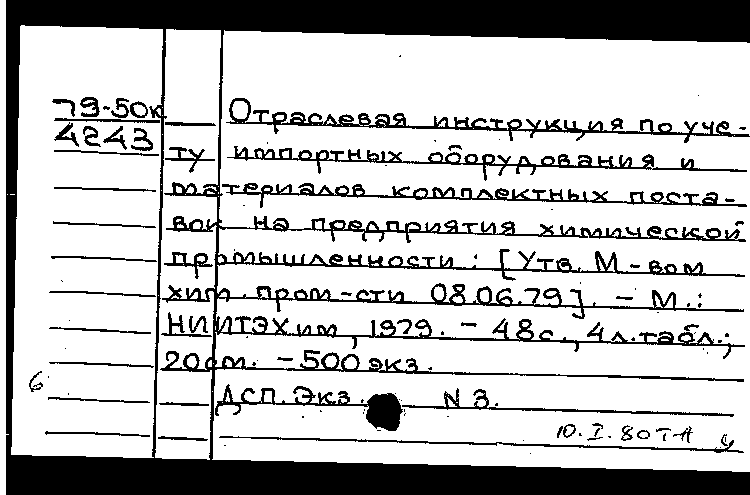 79-50к
4243
Отраслевая инструкция по уче-
ту импортных оборудования и
материалов комплектных поста-
вок на предприятия химической
промышленности: [Утв. М-вом
хим. пром-сти 08.06.79]. – М.:
НИИТЭХим, 1979. – 48 с., 4 л. табл.;
20 см. – 500 экз.
6
ДСП. Экз. N 3.
10.I.80 Т-А у